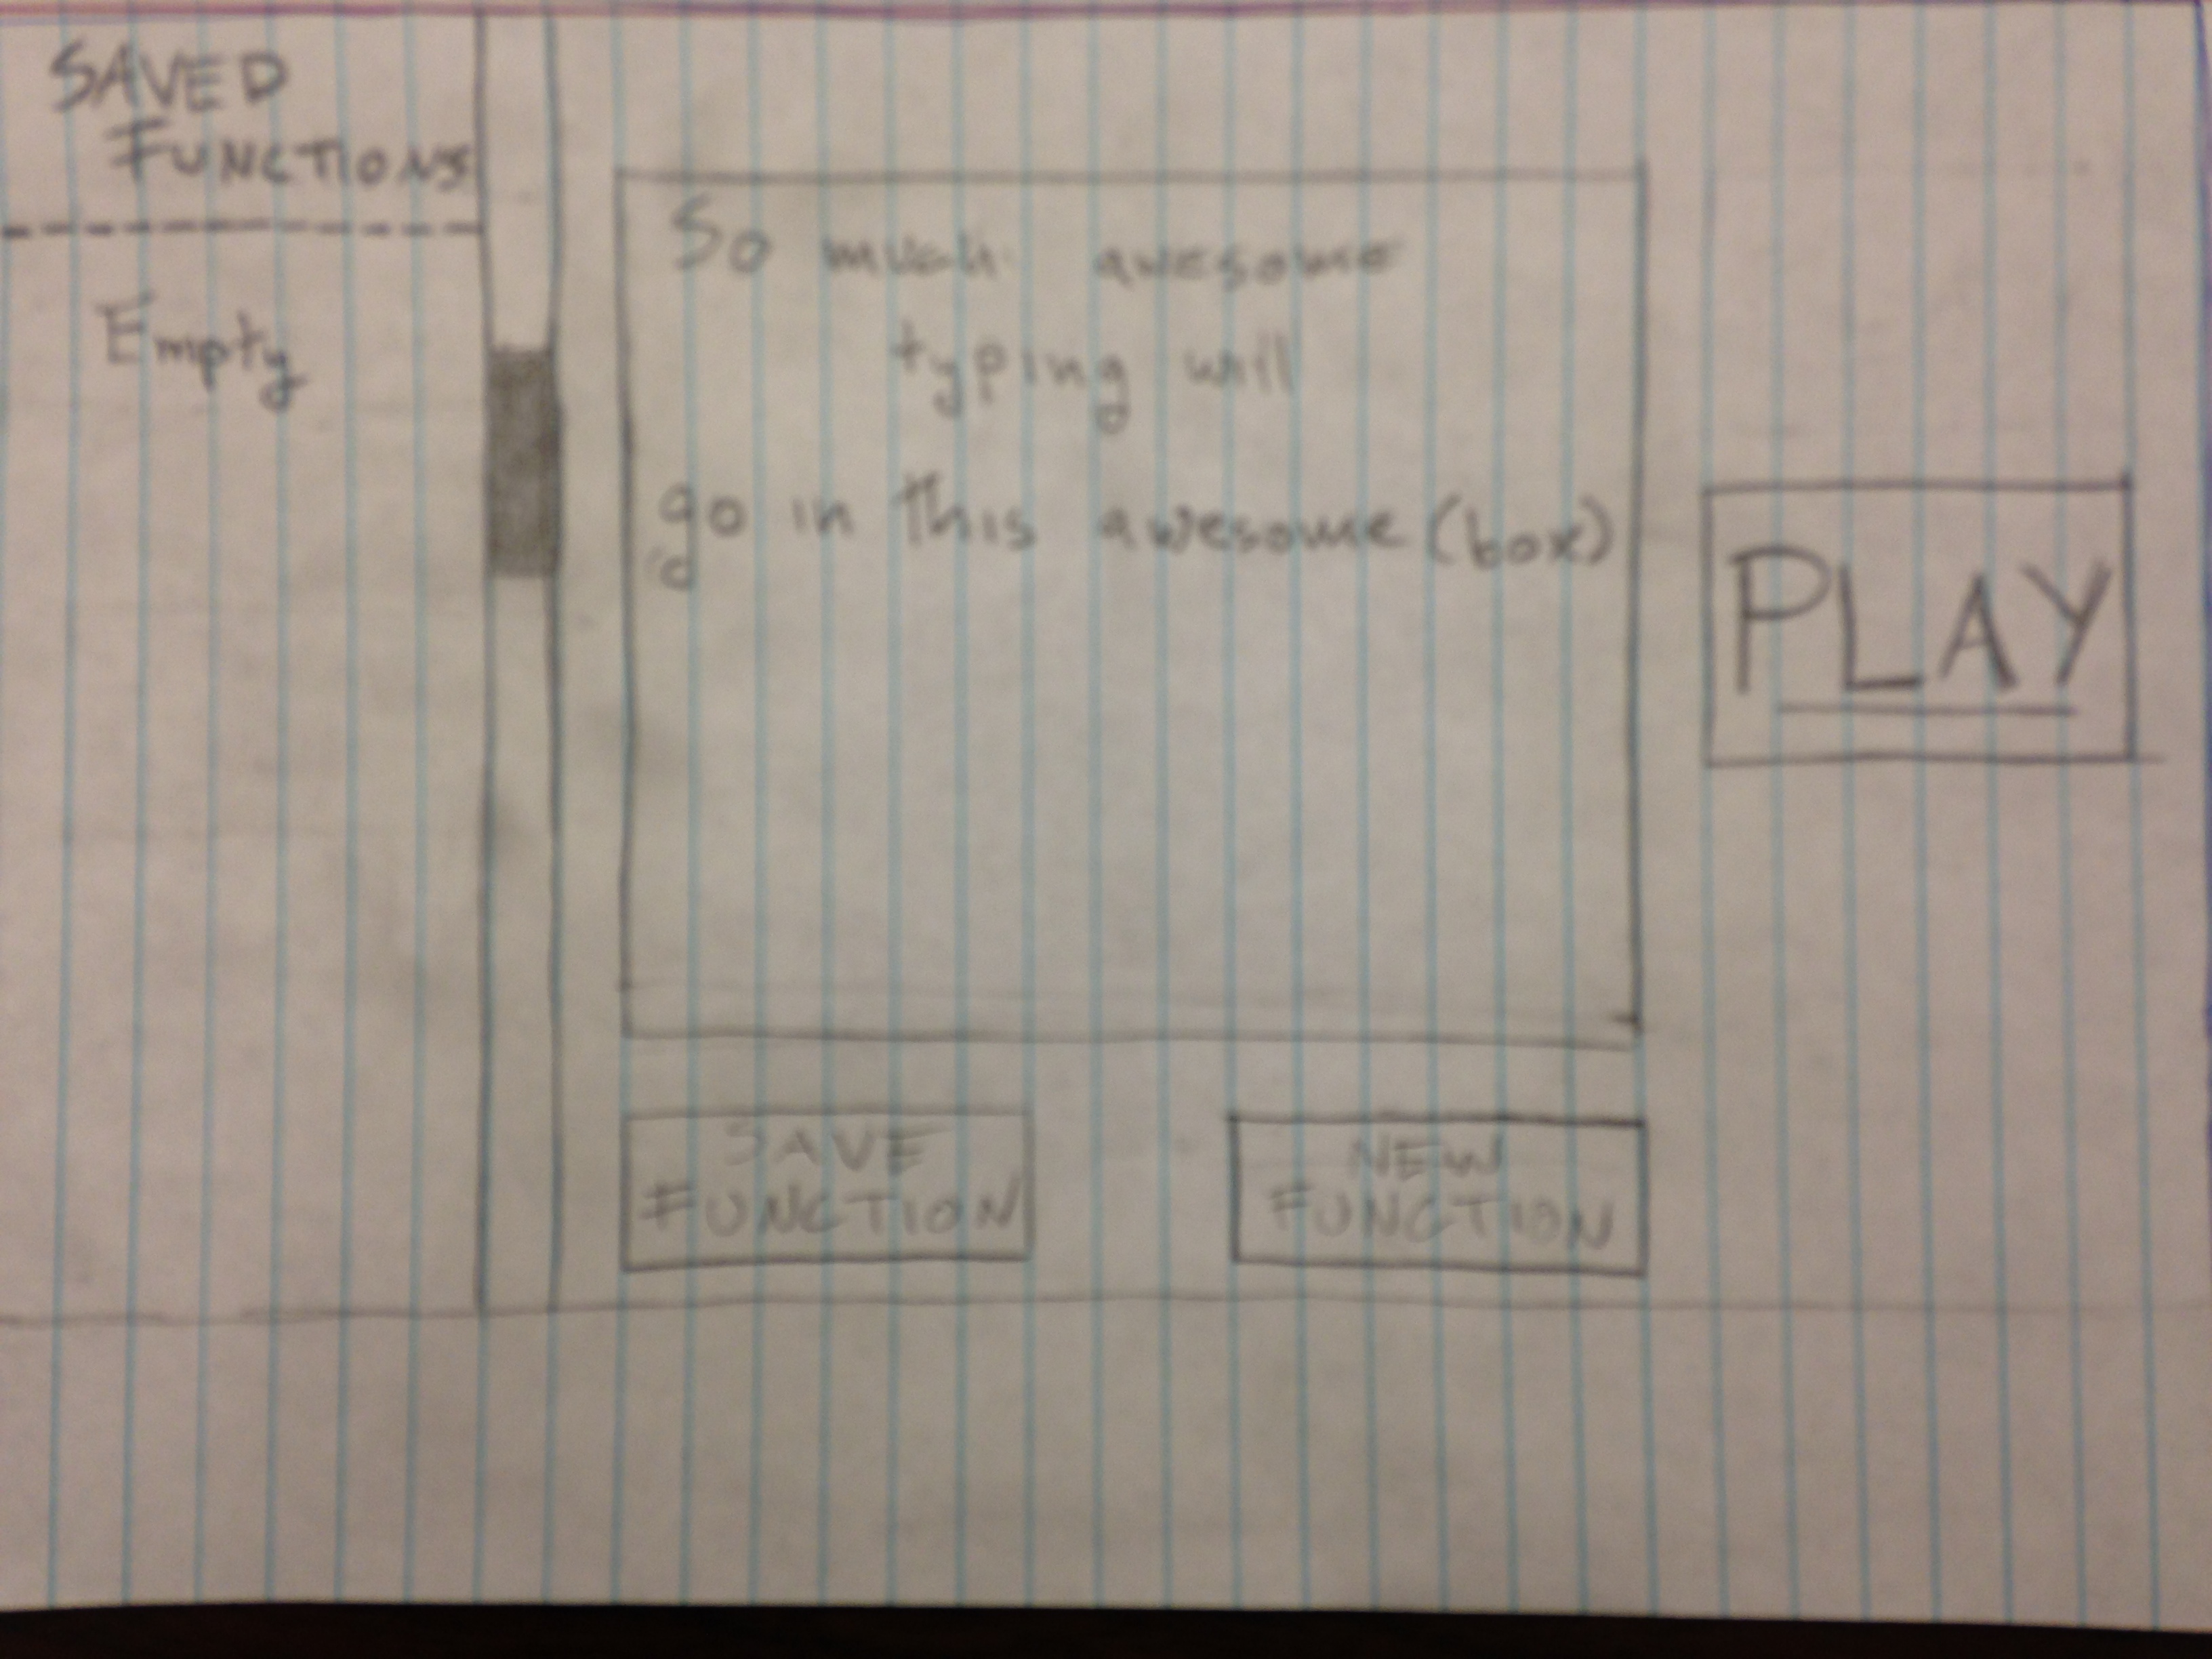 SAVED
FUNCTIONS
Empty
So much awesome
typing will
go in this awesome (box)
PLAY
SAVE
FUNCTION
NEW
FUNCTION